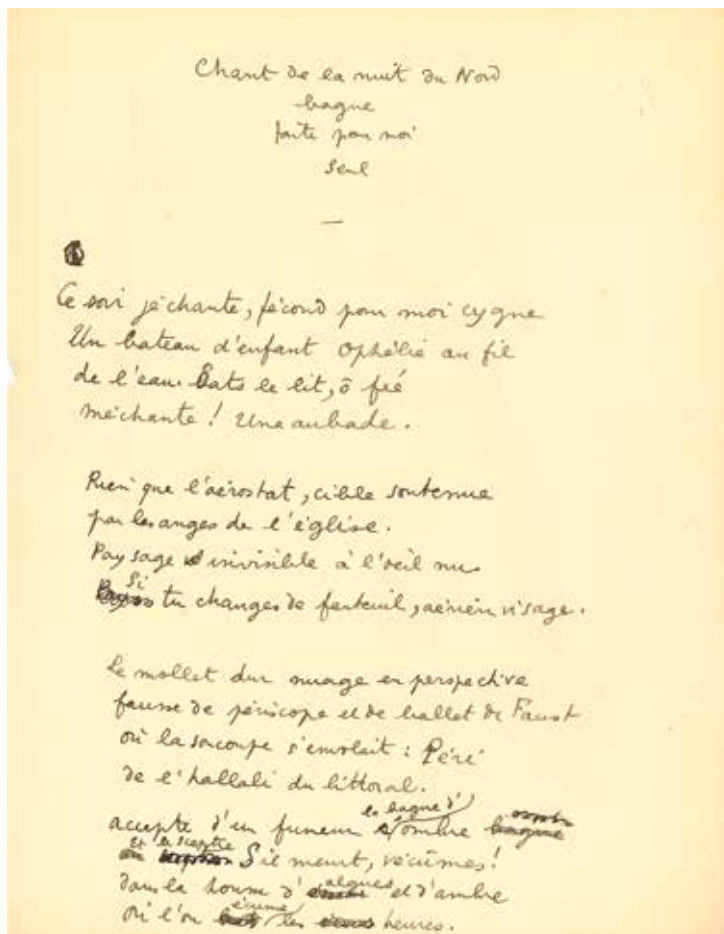 Chant de la nuit du Nord
bague
faite pour moi
seul
—
Ce soir je chante, fécond pour moi cygne
Un bateau d'enfant Ophélie au fil
de l'eau. Bats le lit, ô feé
méchante ! Une aubade.
Rien que l'aérostat, cible soutenue
par les anges de l'église.
Paysage invisible à l'oeil nu
Si tu changes de fauteuil, aérien visage.
Le mollet dur nuage en perspective
fausse de périscope et de ballet de Faust
où la soucoupe s'envolait : Péri
de l'hallali du littoral.
la bague d'
accepte d'un fumeur ombre
et le sceptre S'il meurt, vécûmes !
dans la d'algues et d'ambre
écume
où l'on les heures.